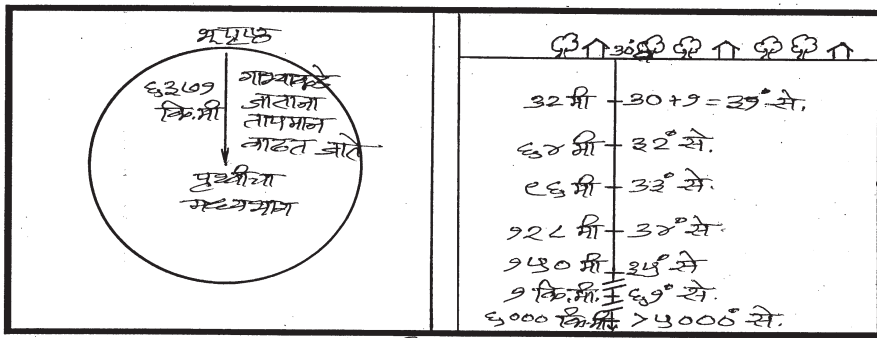 भूपृष्ठ
६३७१
कि.मी
गाभ्याकडे
जाताना
तापमान
वाढत जाते
पृथ्वीचा
मध्यभाग
३०°
३२ मी ३०+१=३१° से.
६४ मी ३२° से.
९६ मी ३३° से.
१२८ मी ३४° से.
१५० मी ३५° से
१ कि.मी. ६१° से.
६००० कि.मी >५०००° से.